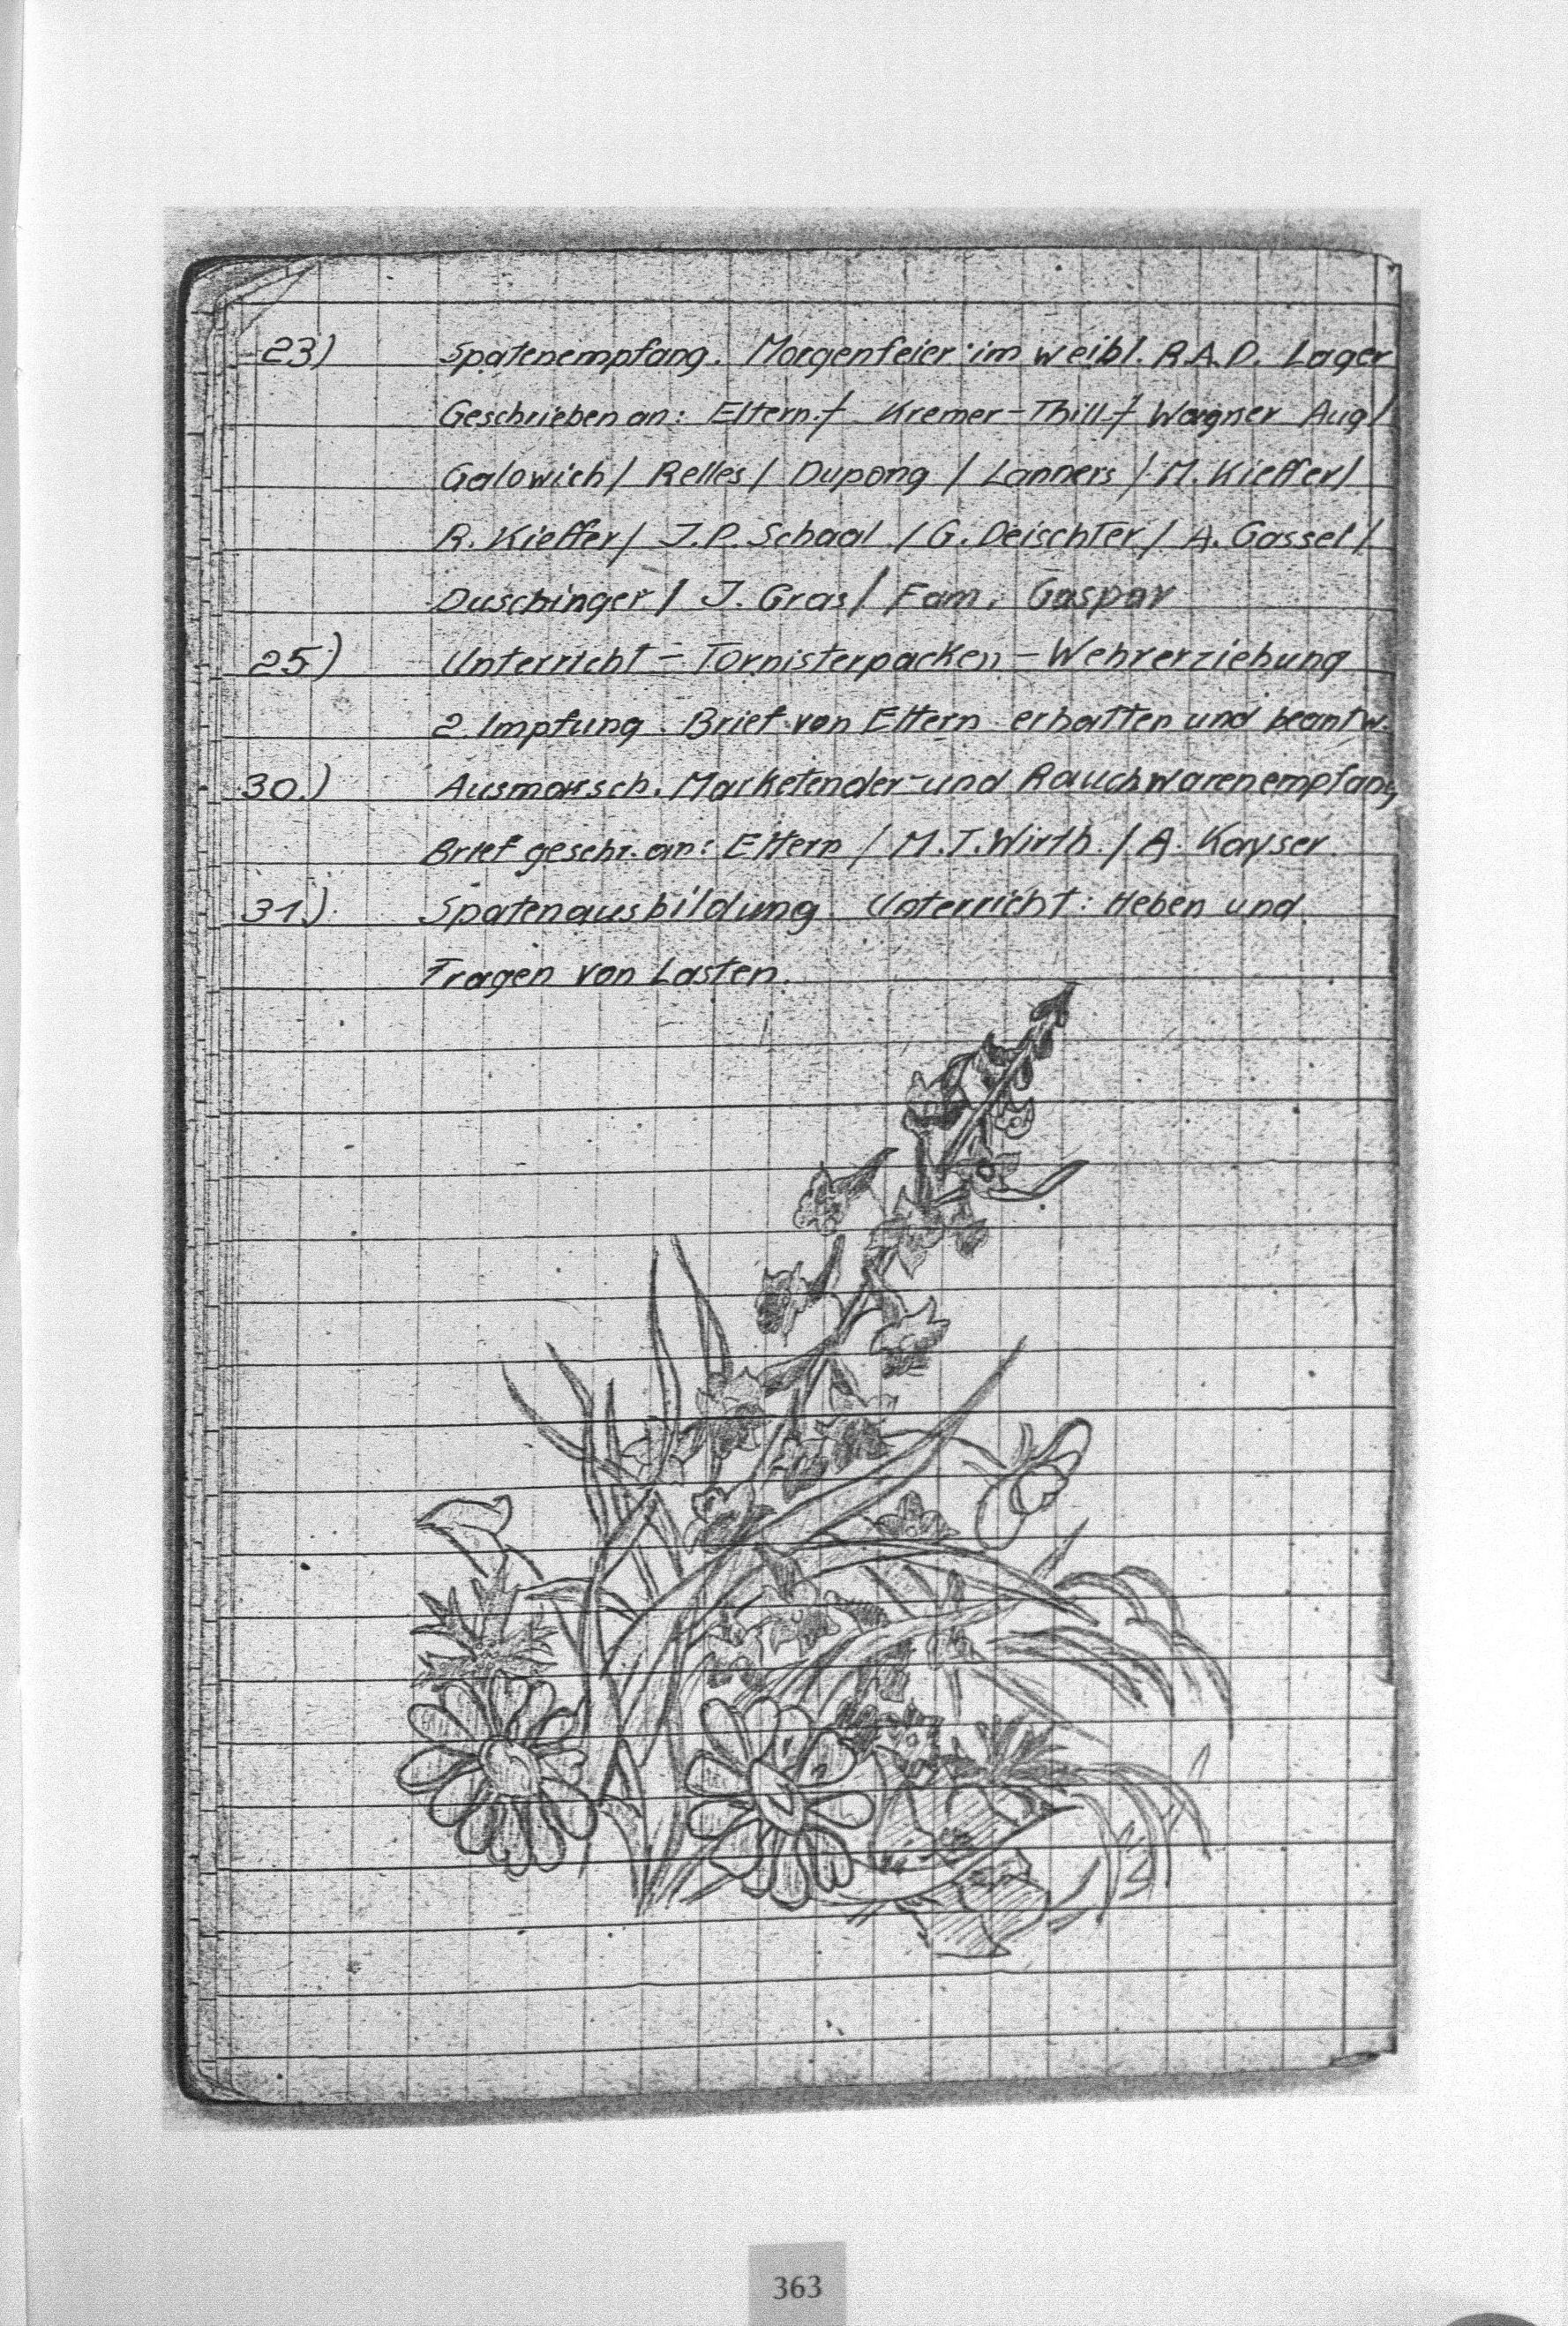 23) Spatenempfang. Morgenfeier im weibl. R.A.D. Lager
Geschrieben an: Eltern / Kremer-Thill / Wagner Aug /
Galowich / Relles / Dupong / Lanners / M. Kieffer /
R. Kieffer / J.P. Schaal / G. Deischter / A. Gassel /
Duschinger / J. Gras / Fam. Gaspar
25) Unterricht – Tornisterpacken – Wehrerziehung
2. Impfung. Brief von Eltern erhalten und beantw.
30.) Ausmarsch. Marketender- und Rauchwarenempfang
Brief geschr. an: Eltern / M.T. Wirth. / A. Kayser
31.) Spatenausbildung. Unterricht: Heben und
Tragen von Lasten.
363